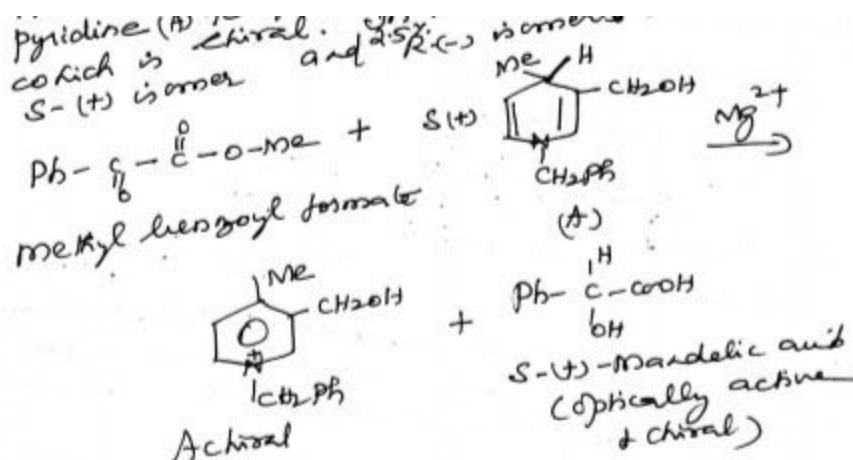 pyridine (A)
which is chiral.
S-(+) isomer and 2.5% R(-) isomer
Me H
CH2OH
Ph - C - C - O - Me + S(+)
O O
N
CH2Ph
Mg2+
methyl benzoyl formate
(A)
Me
CH2OH
N+
CH2Ph
Achiral
+
H
Ph - C - COOH
OH
S-(+)-Mandelic acid
(optically active
& chiral)